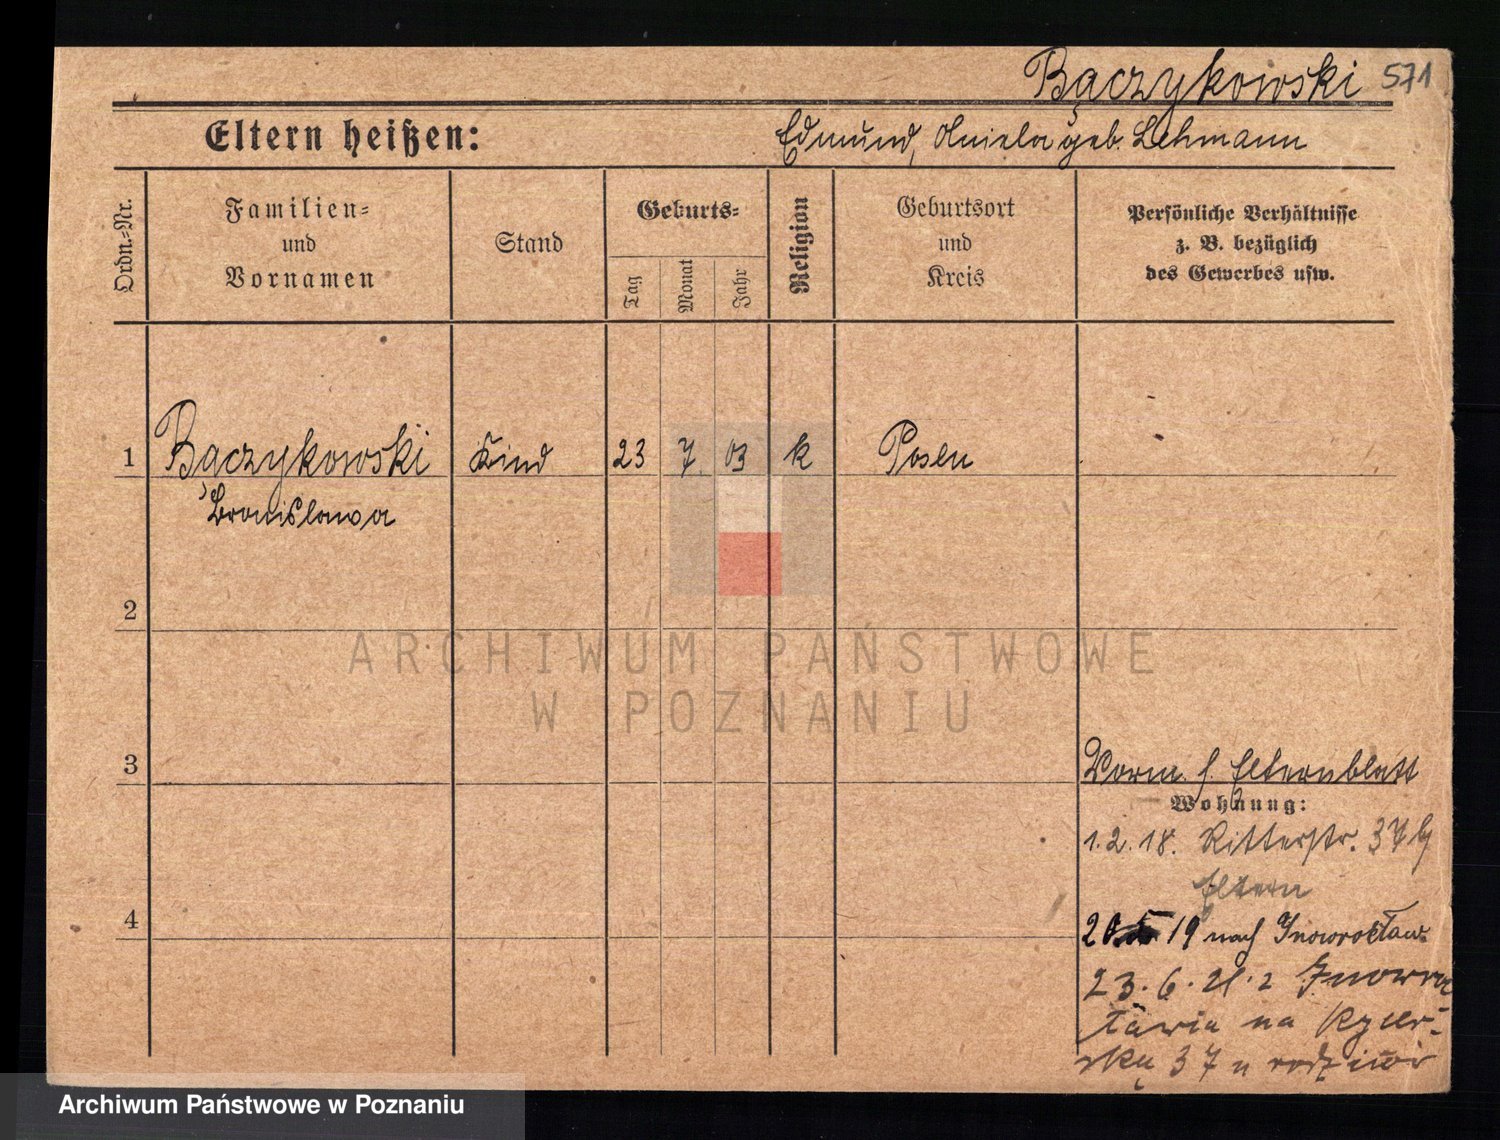 Bączykowski 571
Eltern heißen: Edmund, Aniela geb. Lehmann
Ordn.-Nr.
Familien-
und
Vornamen
Stand
Geburts-
Tag
Monat
Jahr
Religion
Geburtsort
und
Kreis
Persönliche Verhältnisse
z. B. bezüglich
des Gewerbes usw.
1 Bączykowski Kind 23 7. 03 k Posen
Bronislawa
2
ARCHIWUM PAŃSTWOWE
W POZNANIU
3
Vorm. s. Elternblatt
Wohnung:
1.2.18. Ritterstr. 37
Eltern
4
20 19 nach Inowrocław.
23.6.21. z Inowro
cławia na Rycer-
ską 37 u rodziców
Archiwum Państwowe w Poznaniu